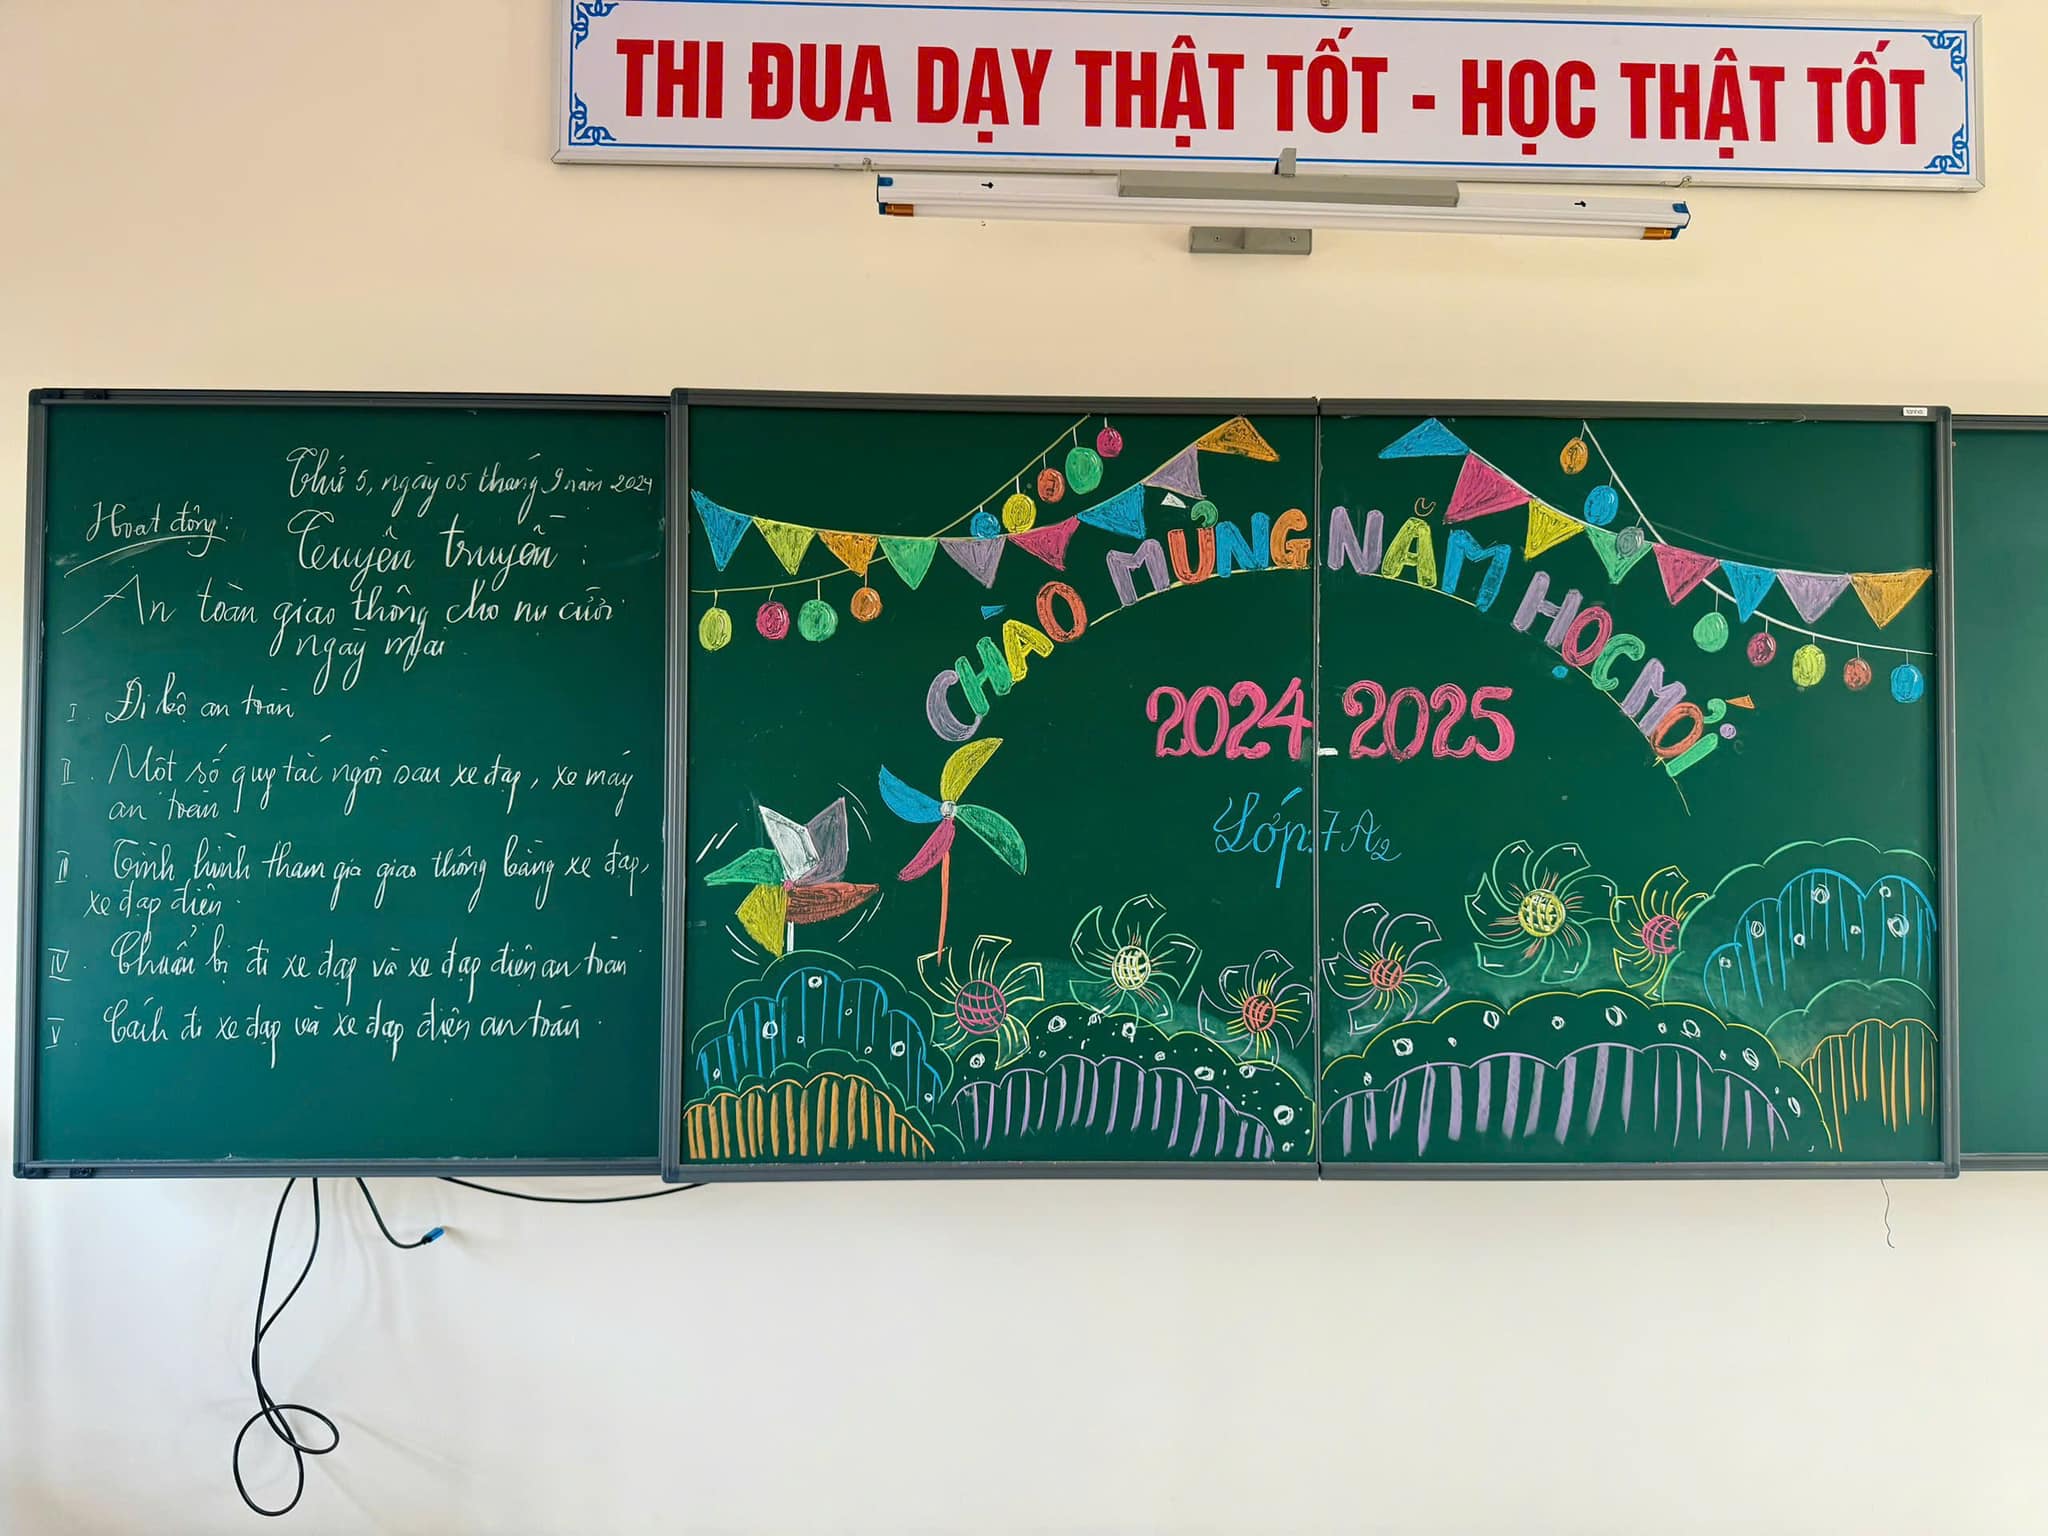 THI ĐUA DẠY THẬT TỐT - HỌC THẬT TỐT
Thứ 5, ngày 05 tháng 9 năm 2024
Hoạt động:
Tuyên truyền:
An toàn giao thông cho nụ cười
ngày mai
I. Đi bộ an toàn
II. Một số quy tắc ngồi sau xe đạp, xe máy
an toàn
III. Tình hình tham gia giao thông bằng xe đạp,
xe đạp điện.
IV. Chuẩn bị đi xe đạp và xe đạp điện an toàn
V. Cách đi xe đạp và xe đạp điện an toàn.
CHÀO MỪNG NĂM HỌC MỚI
2024-2025
Lớp: 7A2